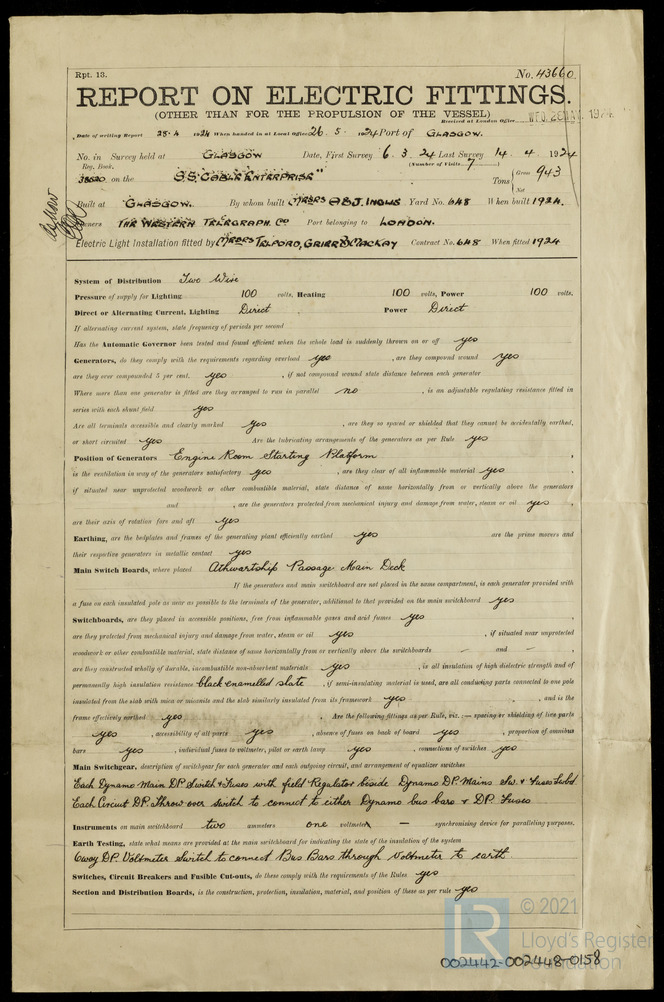 Rpt. 13.
No. 43660.
REPORT ON ELECTRIC FITTINGS.
(OTHER THAN FOR THE PROPULSION OF THE VESSEL)
Received at London Office WED. 28 MAY 1924
Date of writing Report 28.4 1924 When handed in at Local Office 26.5. 1924 Port of GLASGOW.
No. in Survey held at GLASGOW Date, First Survey 6.3.24 Last Survey 14.4.1924
Reg. Book. (Number of Visits 7)
38620 on the S.S. "CABLE ENTERPRISE" Tons Gross 943
Net
Built at GLASGOW. By whom built MESSRS A & J. INGLIS Yard No. 648 When built 1924.
Owners THE WESTERN TELEGRAPH Co Port belonging to LONDON.
Electric Light Installation fitted by MESSRS TELFORD, GRIER & MACKAY Contract No. 648 When fitted 1924
System of Distribution Two Wire
Pressure of supply for Lighting 100 volts, Heating 100 volts, Power 100 volts.
Direct or Alternating Current, Lighting Direct Power Direct
If alternating current system, state frequency of periods per second
Has the Automatic Governor been tested and found efficient when the whole load is suddenly thrown on or off yes
Generators, do they comply with the requirements regarding overload yes, are they compound wound yes
are they over compounded 5 per cent. yes, if not compound wound state distance between each generator
Where more than one generator is fitted are they arranged to run in parallel no, is an adjustable regulating resistance fitted in
series with each shunt field yes
Are all terminals accessible and clearly marked yes, are they so spaced or shielded that they cannot be accidentally earthed,
or short circuited yes Are the lubricating arrangements of the generators as per Rule yes
Position of Generators Engine Room Starting Platform
is the ventilation in way of the generators satisfactory yes, are they clear of all inflammable material yes,
if situated near unprotected woodwork or other combustible material, state distance of same horizontally from or vertically above the generators
and , are the generators protected from mechanical injury and damage from water, steam or oil yes,
are their axis of rotation fore and aft yes
Earthing, are the bedplates and frames of the generating plant efficiently earthed yes are the prime movers and
their respective generators in metallic contact yes
Main Switch Boards, where placed Athwartship Passage Main Deck
If the generators and main switchboard are not placed in the same compartment, is each generator provided with
a fuse on each insulated pole as near as possible to the terminals of the generator, additional to that provided on the main switchboard yes
Switchboards, are they placed in accessible positions, free from inflammable gases and acid fumes yes,
are they protected from mechanical injury and damage from water, steam or oil yes, if situated near unprotected
woodwork or other combustible material, state distance of same horizontally from or vertically above the switchboards - and -,
are they constructed wholly of durable, incombustible non-absorbent materials yes, is all insulation of high dielectric strength and of
permanently high insulation resistance black enamelled slate, if semi-insulating material is used, are all conducting parts connected to one pole
insulated from the slab with mica or micanite and the slab similarly insulated from its framework yes, and is the
frame effectively earthed yes. Are the following fittings as per Rule, viz.:— spacing or shielding of live parts
yes, accessibility of all parts yes, absence of fuses on back of board yes, proportion of omnibus
bars yes, individual fuses to voltmeter, pilot or earth lamp yes, connections of switches yes
Main Switchgear, description of switchgear for each generator and each outgoing circuit, and arrangement of equalizer switches
Each Dynamo Main D.P. Switch & Fuses with field Regulator beside Dynamo D.P. Mains Sw. & Fuses
Each Circuit D.P. Throw over switch to connect to either Dynamo bus bars & D.P. Fuses
Instruments on main switchboard two ammeters one voltmeter - synchronising device for paralleling purposes.
Earth Testing, state what means are provided at the main switchboard for indicating the state of the insulation of the system
6 way D.P. Voltmeter Switch to connect Bus Bars through Voltmeter to earth
Switches, Circuit Breakers and Fusible Cut-outs, do these comply with the requirements of the Rules yes
Section and Distribution Boards, is the construction, protection, insulation, material, and position of these as per rule yes
LR
© 2021
Lloyd's Register
Foundation
002442-002448-0158